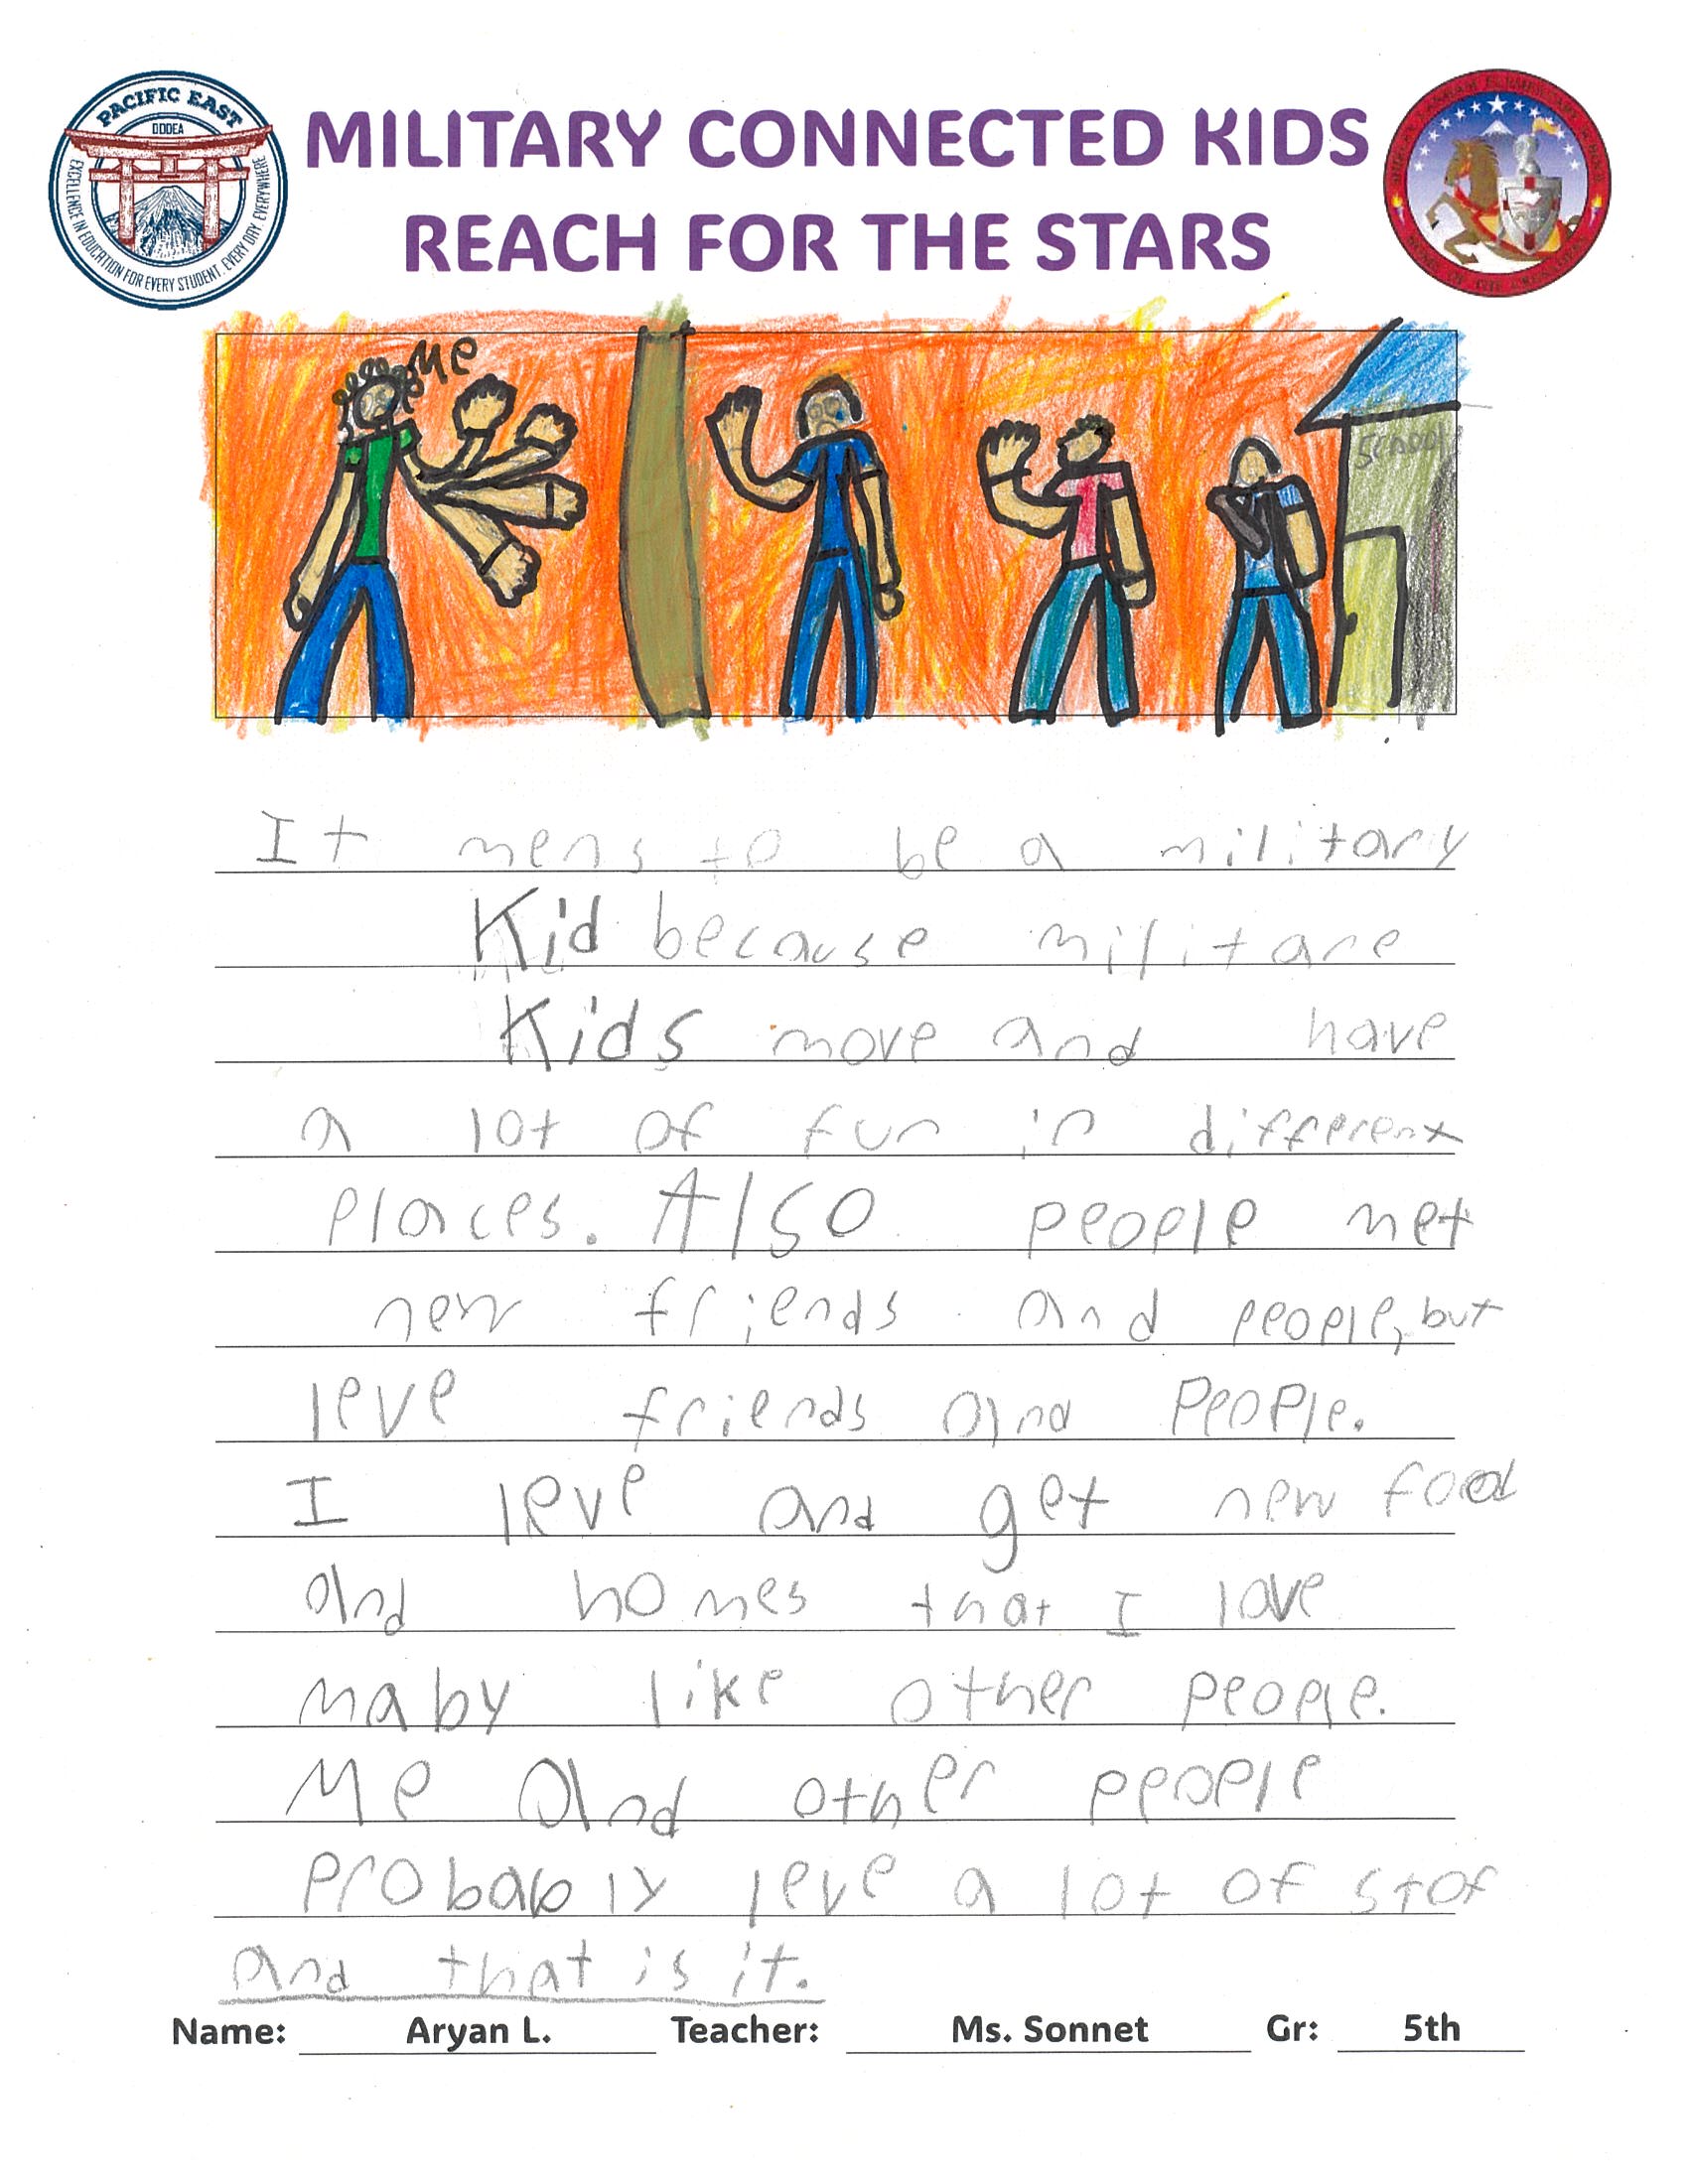 PACIFIC EAST
DODEA
EXCELLENCE IN EDUCATION FOR EVERY STUDENT, EVERY DAY, EVERYWHERE
MILITARY CONNECTED KIDS
REACH FOR THE STARS
Me
School
It mens to be a military
Kid because militare
Kids move and have
a lot of fun in different
Places. Also people met
new friends and people, but
leve friends and People.
I leve and get new food
and homes that I love
maby like other people.
Me and other people
Probably leve a lot of stof
and that is it.
Name: Aryan L. Teacher: Ms. Sonnet Gr: 5th